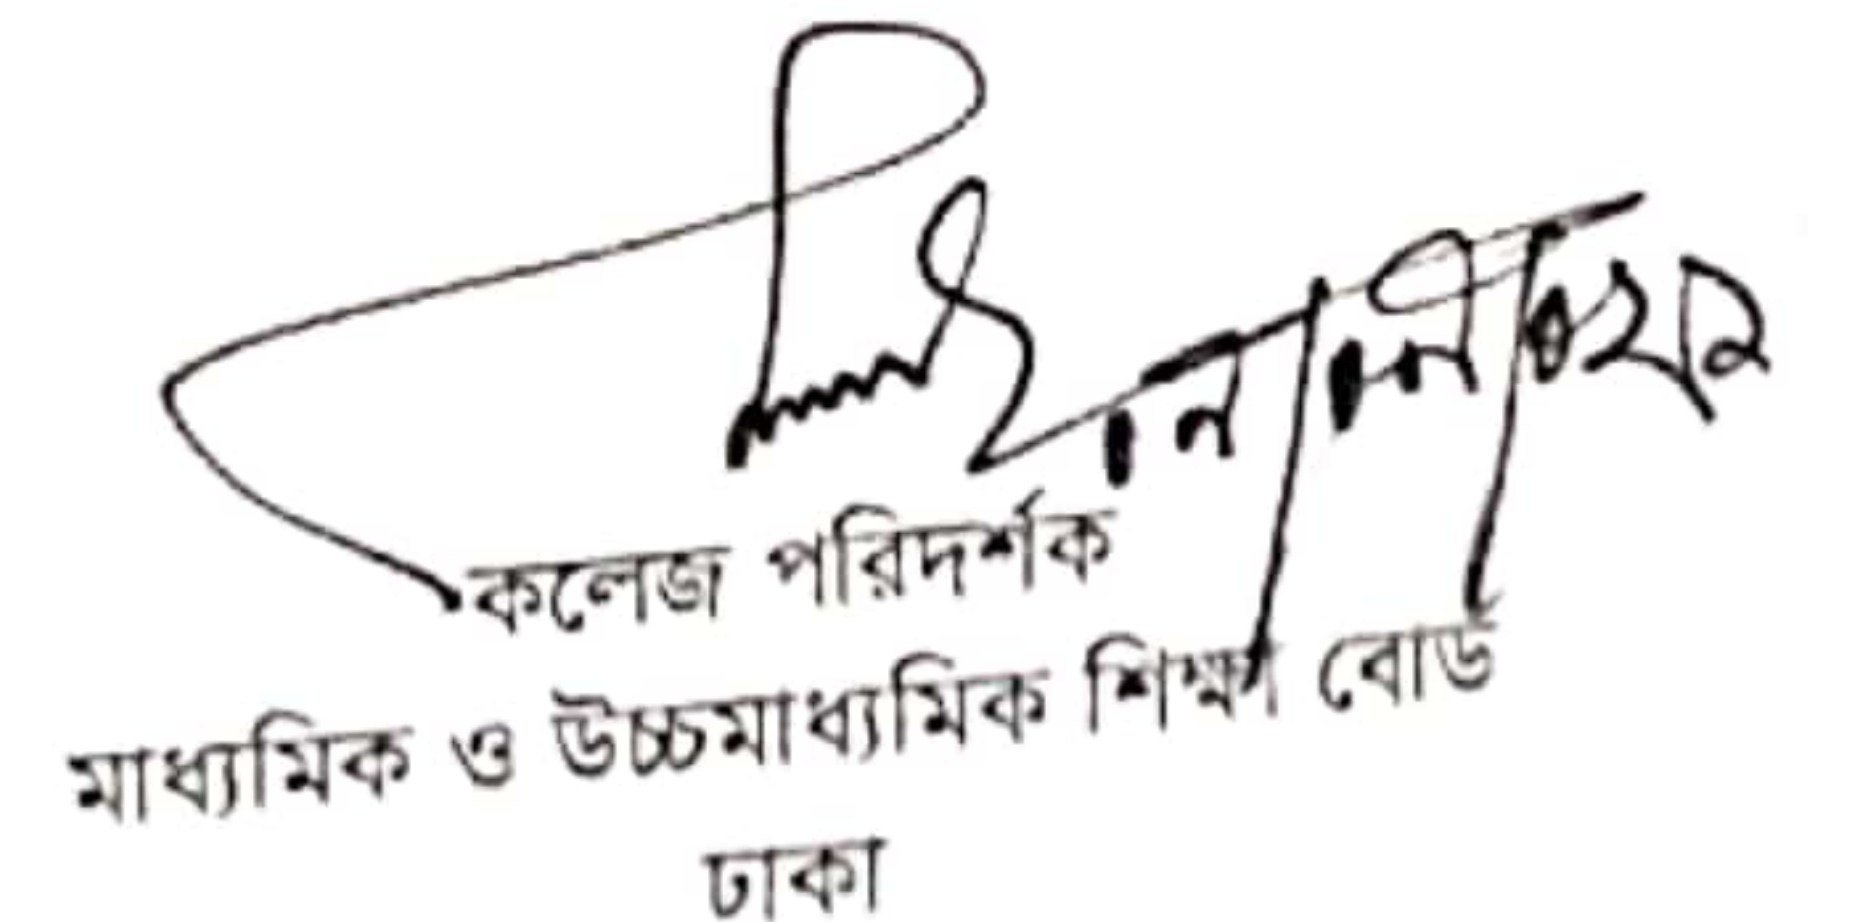 কলেজ পরিদর্শক
মাধ্যমিক ও উচ্চমাধ্যমিক শিক্ষা বোর্ড
ঢাকা